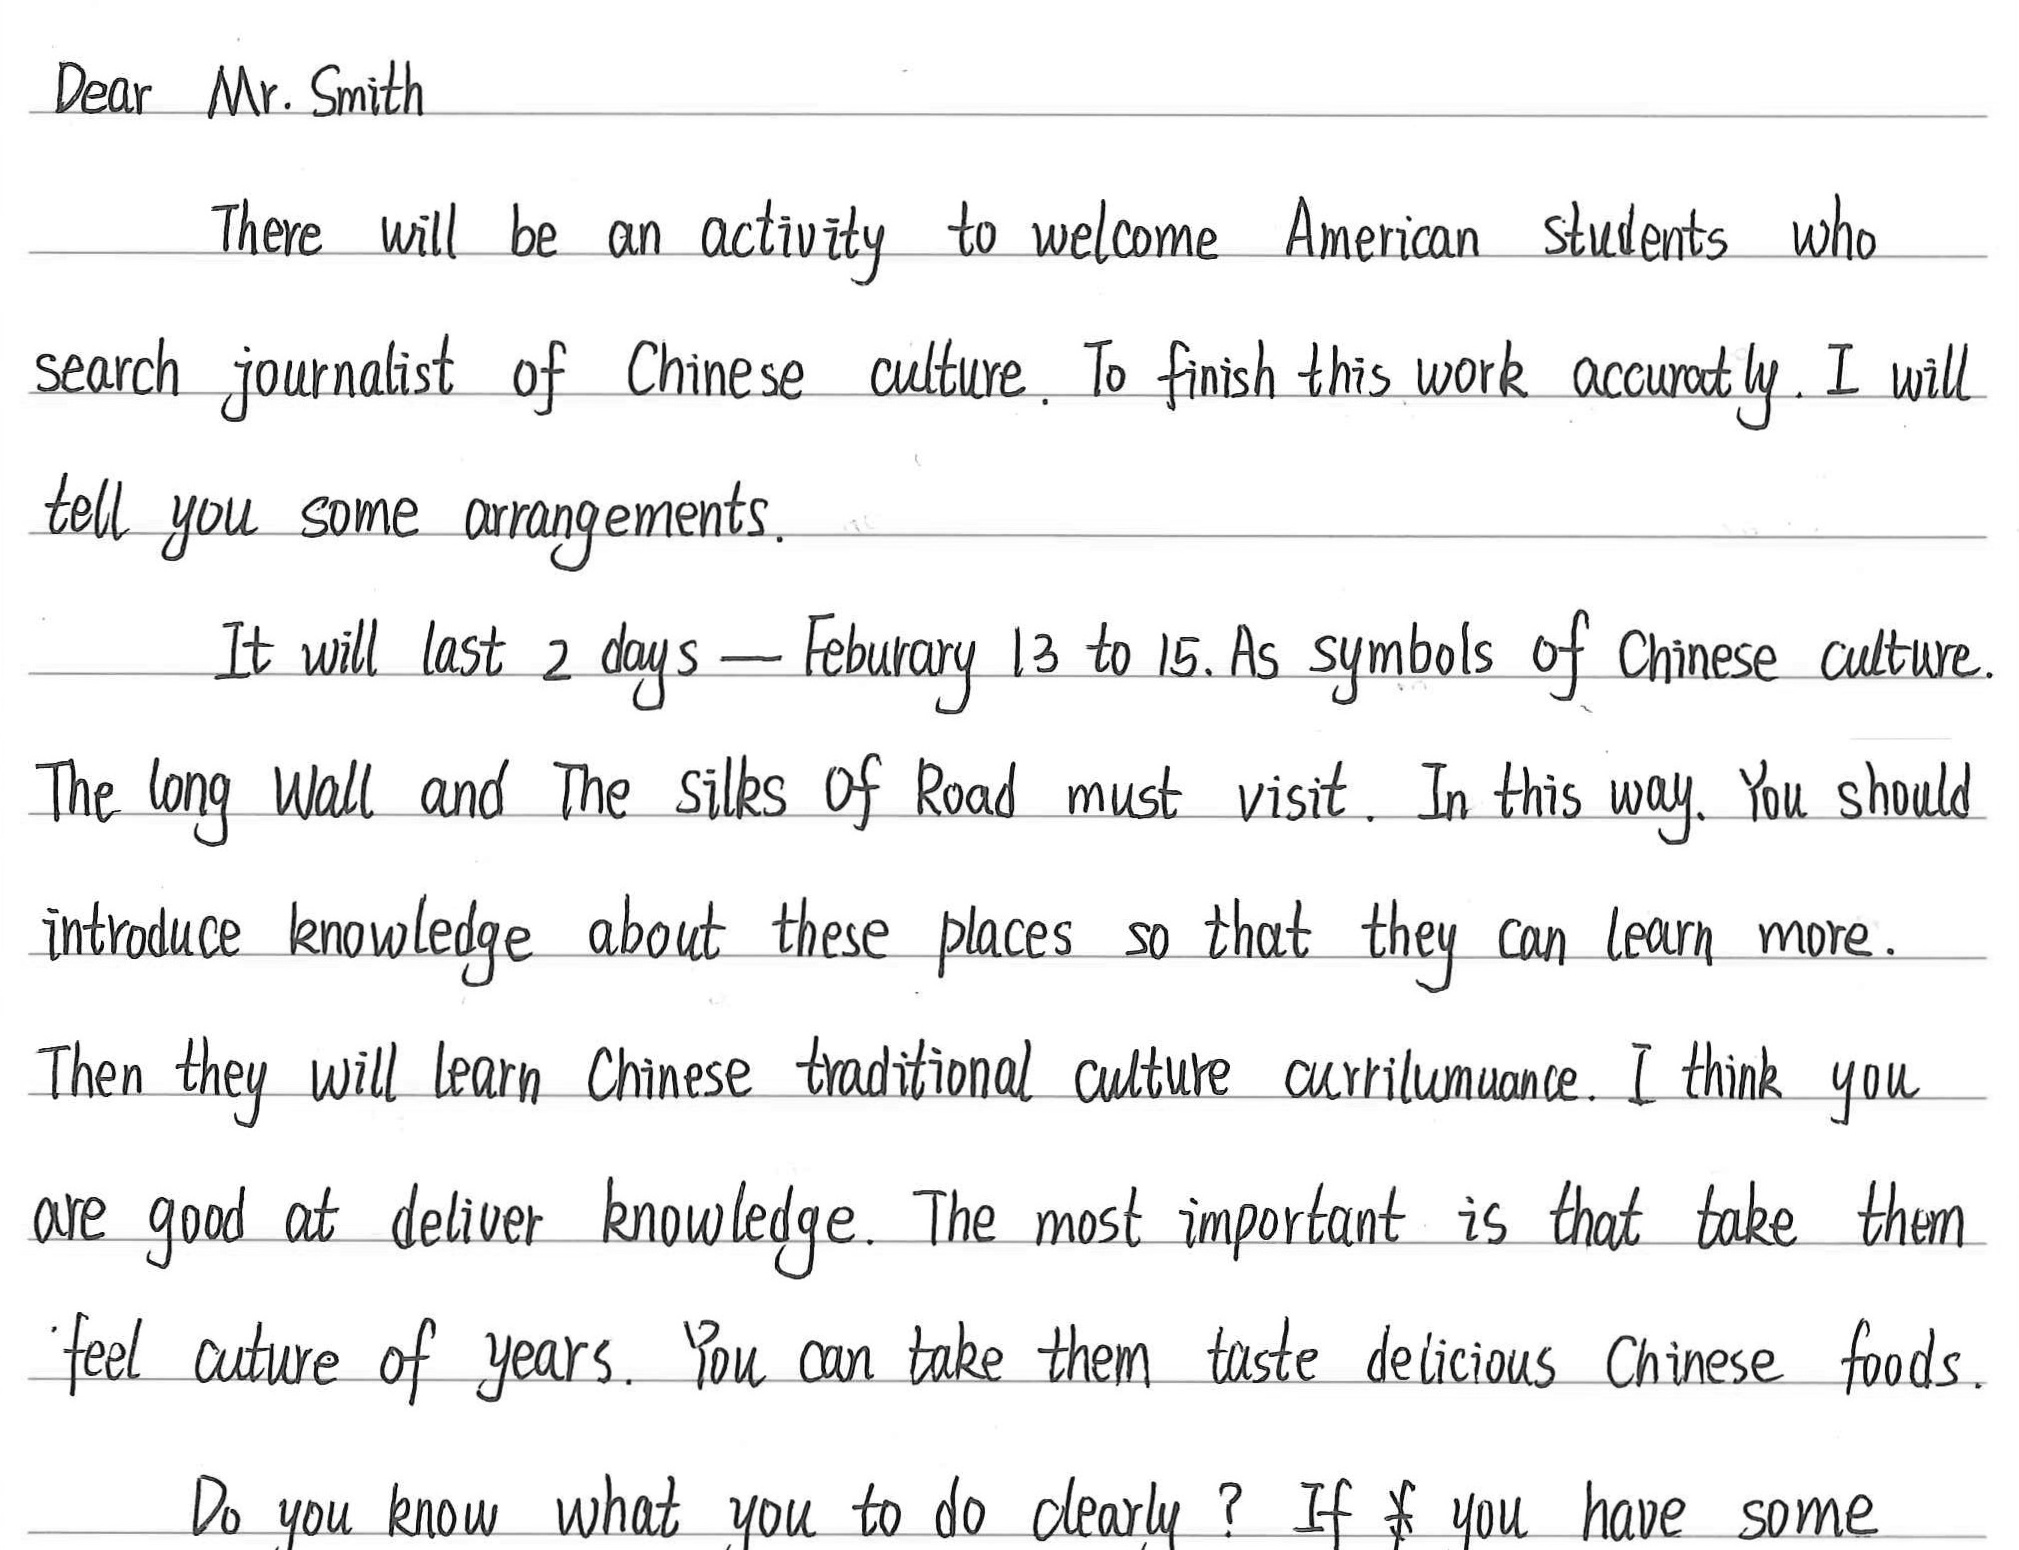 Dear Mr. Smith
There will be an activity to welcome American students who
search journalist of Chinese culture. To finish this work accuratly. I will
tell you some arrangements.
It will last 2 days — Feburary 13 to 15. As symbols of Chinese culture.
The long Wall and The Silks Of Road must visit. In this way. You should
introduce knowledge about these places so that they can learn more.
Then they will learn Chinese traditional culture currilumuance. I think you
are good at deliver knowledge. The most important is that take them
feel cuture of years. You can take them taste delicious Chinese foods.
Do you know what you to do clearly? If you have some